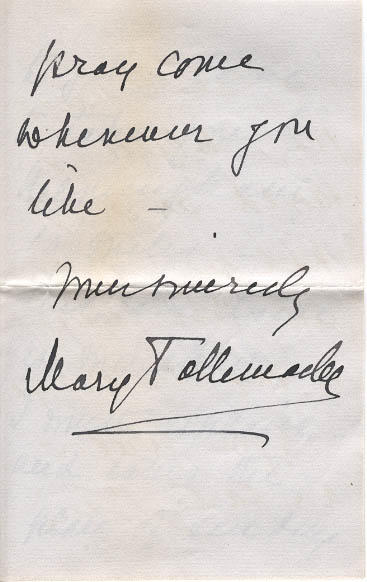 pray come
whenever you
like –
Yours sincerely
Mary Tollemache